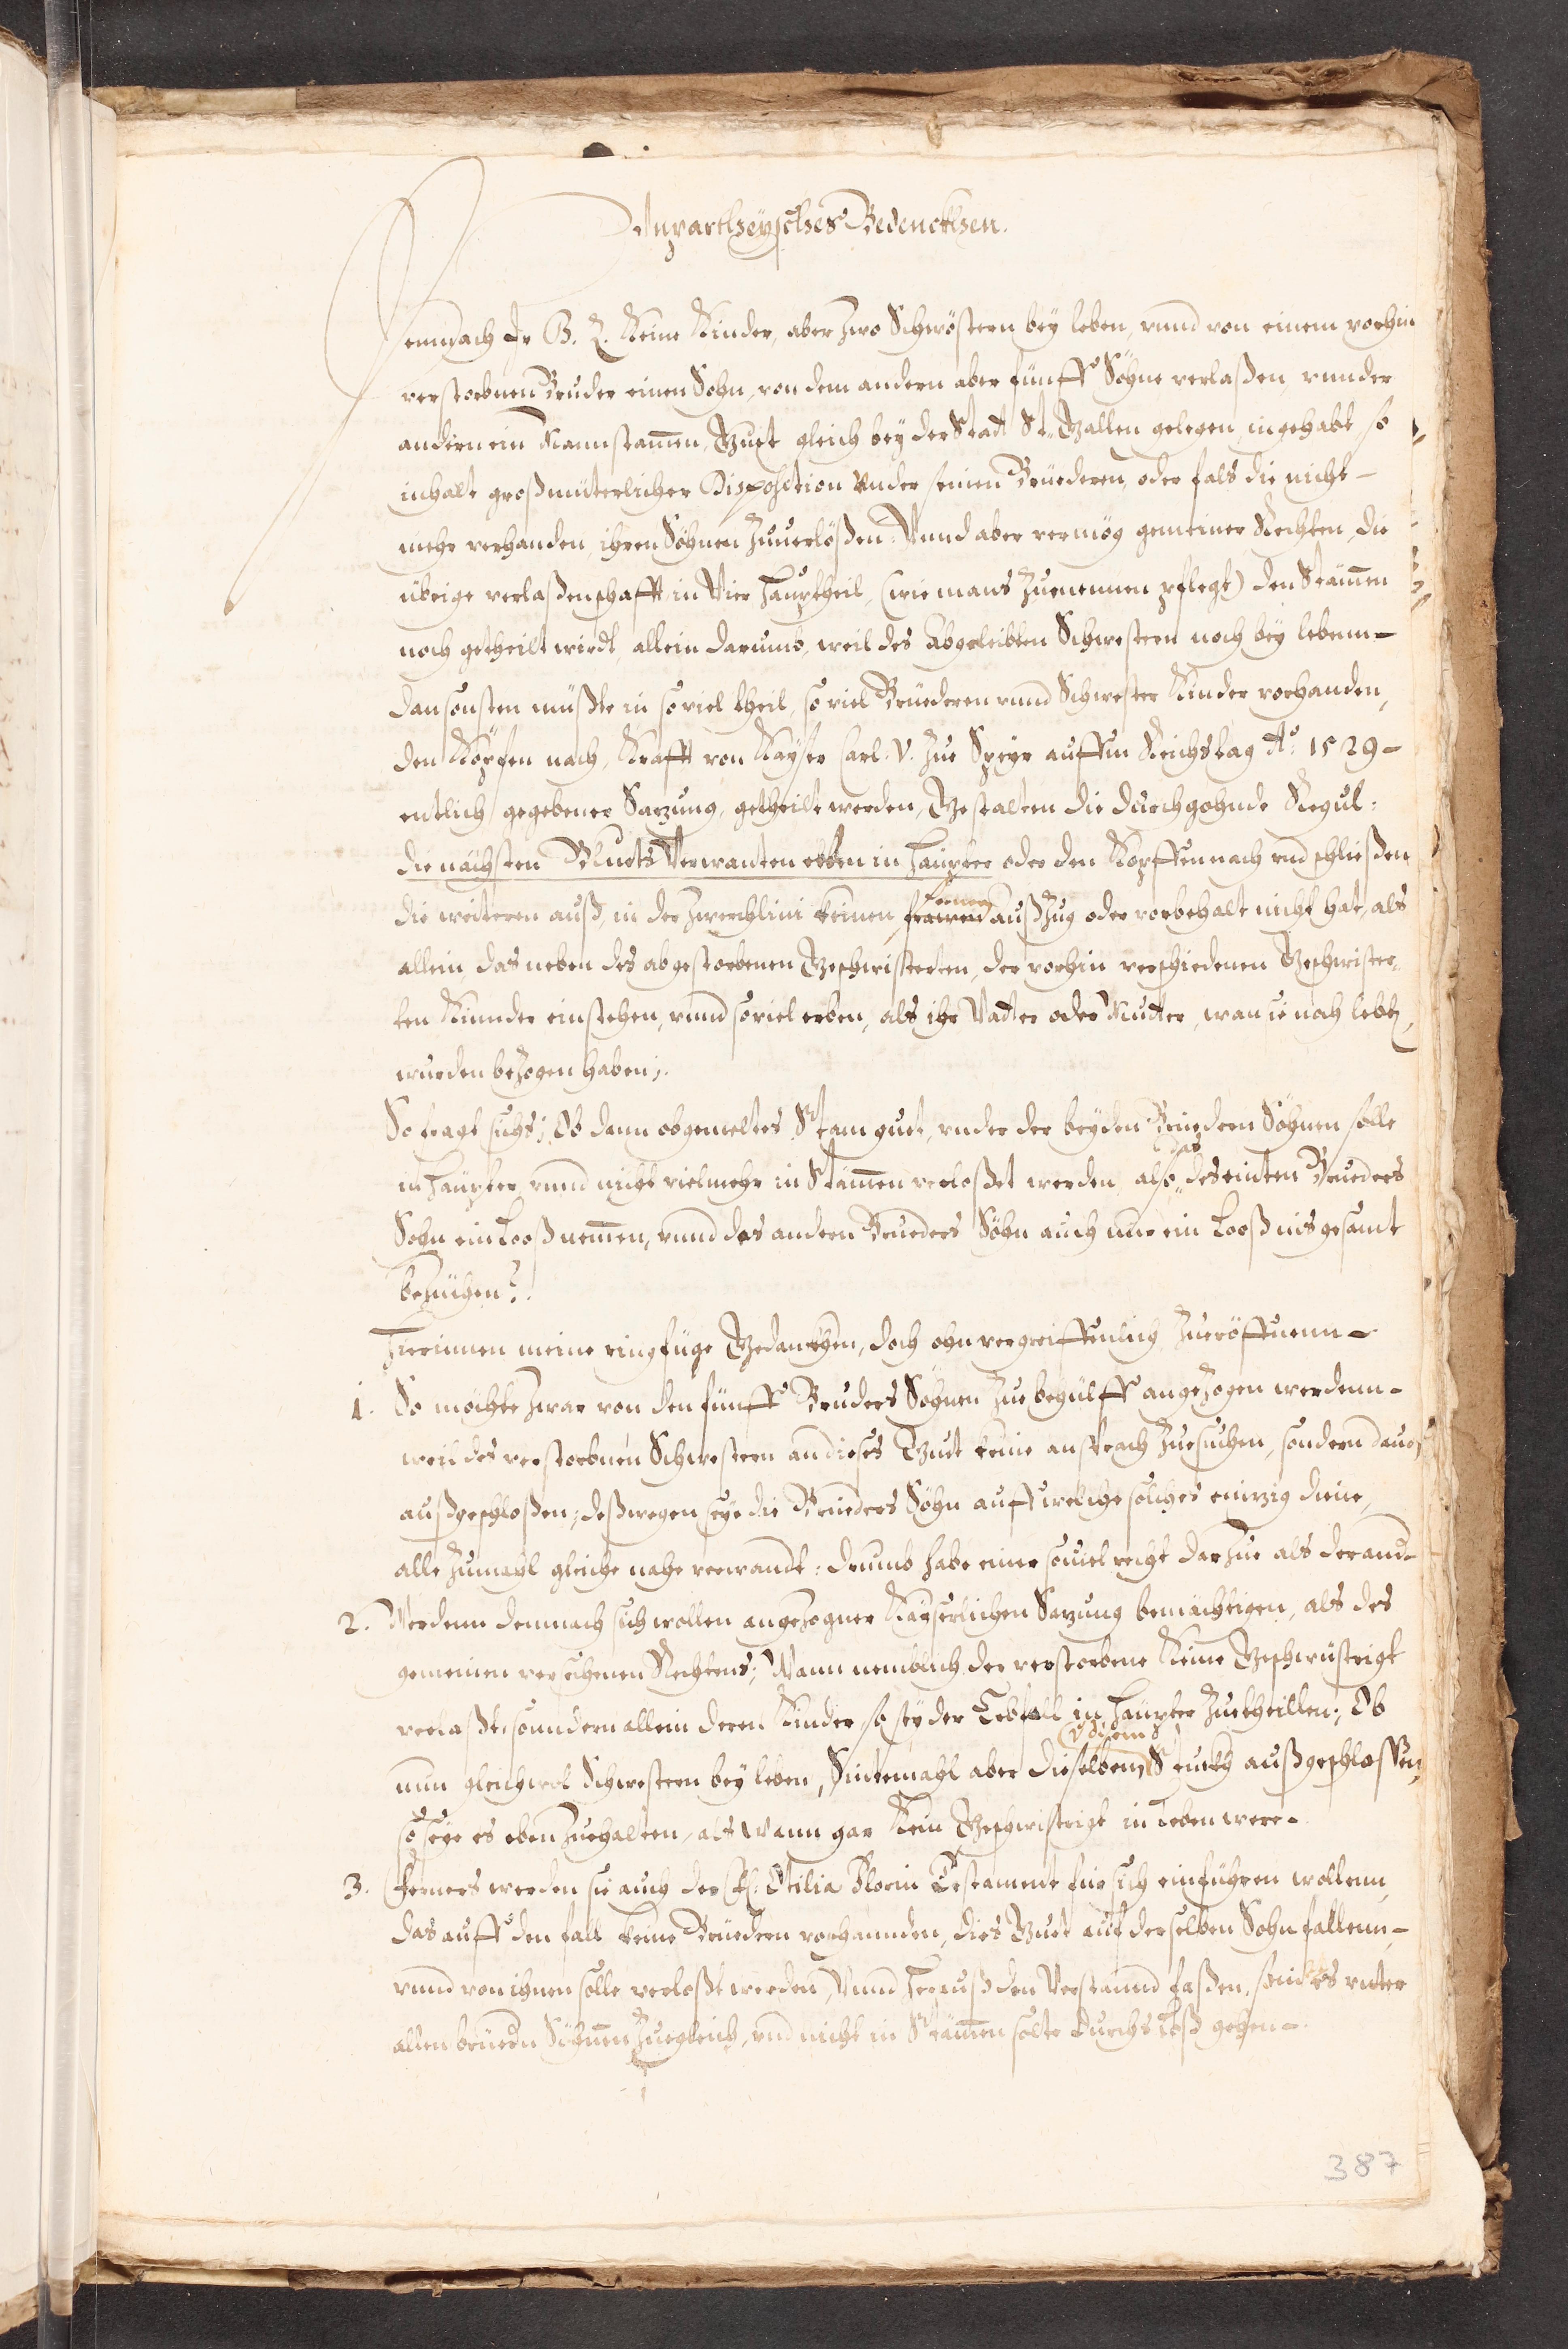 Unpartheyisches Bedenckhen.
Demnach Jr B. Z. Keine Kinder, aber zwo Schwöstern bey leben, vnnd von einem vorhin
verstorbnen Bruder einen Sohn, von dem andern aber fünff Söhne verlaßen, vnnder
andern ein Mannstammen, Guet gleich bey der Statt St. Gallen gelegen, ingehabt, so
inhalt großmüterlicher Disposition vnder seinen Brüederen, oder fals die nicht
mehr verhanden, ihren Söhnen Zuuerlößen. Vnnd aber vermög gemeiner Rechten, die
übrige verlaßenschafft in Vier Haupttheil, (wie mans Zuenennen pflegt) den Stämmen
nach getheilt wirdt, allein darumb, weil des Abgeleibten Schwestern noch bey lebenn-
dan sonsten müßte in so viel theil, so viel Brüederen vnnd Schwester Kinder vorhanden,
den Köpfen nach, Krafft von Kayser Carl. V. Zue Speyr auffm Reichstag Ao. 1529-
entlich gegebener Sazung, getheilt werden, Gestalten die durchgehnde Regul:
die nächsten Bluets Verwanten erben in Haüpter oder den Köpffen nach vnd schließen
die weiteren auß, in der Zwerchlini keinen fernern außZug oder vorbehalt nicht hat, als
allein das neben des abgestorbenen Geschwisterten, der vorhin verschiedenen Geschwister,
ten Kinnder einstehen, vnnd soviel erben, als ihr Vatter oder Mutter, wan sie noch lebte,
wurden bezogen haben;
So fragt sichs; Ob dann obgemeltes Stamguet, vnder der beyden Brüedern Söhnen solle
in Haüpter, vnnd nicht vielmehr in Stämmen verloßet werden, also das des einten Brueders
Sohn ein Looß nemmen, vnnd des andern Brueders Söhn auch nur ein Looß insgesamt
beziehen?
Hierinnen meine ringfüge Gedanckhen, doch ohnvergreiffenlich Zueröffnenn-
1. So möchte zwar von den fünff Bruders Söhnen Zue behülff angezogen werdenn-
weil des verstorbnen Schwestern an dieses Guet keine ansprach Zuesuchen, sondern dauon
außgeschloßen; deßwegen seye die Brueders Söhn auf welche solches einzig diene,
alle Zumahl gleiche nahe verwandt: drumb habe einer souiel recht darZue als der and-
2. Werdenn demnach sich wollen angezogner Kayserlichen Sazung bemächtigen, als des
gemeinen versehenen Rechtens; Wann nemblich der verstorbene Keine Geschwüstrigt
verlaßt, sonndern allein deren Kinder, so sey der Erbfall in Haüpter Zuetheillen; Ob
nun gleichwol Schwestern bey leben, Sintemahl aber dieselben, diesem Stuckh außgeschlossen,
so seye es eben Zuehalten, als wann gar Kein Geschwistrigt in leben were-
3. Ferners werden sie auch der Otilia Testament für sich einführen wollenn,
das auff den fall keine Brüedern vorhannden, dies Guet auf derselben Söhn fallenn-
vnnd von ihnen solle verloßt werden, Vnnd Herauß den Verstannd faßen, sam es vnter
allen brüedern Söhnen Zuegleich, vnd nicht in Stämmen solte durchs Looß gehen-
387